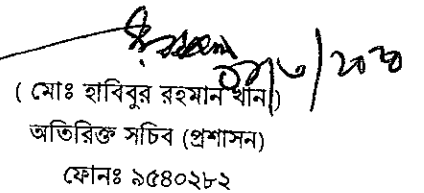 ( মোঃ হাবিবুর রহমান খান )
অতিরিক্ত সচিব (প্রশাসন)
ফোনঃ ৯৫৪০২৮২